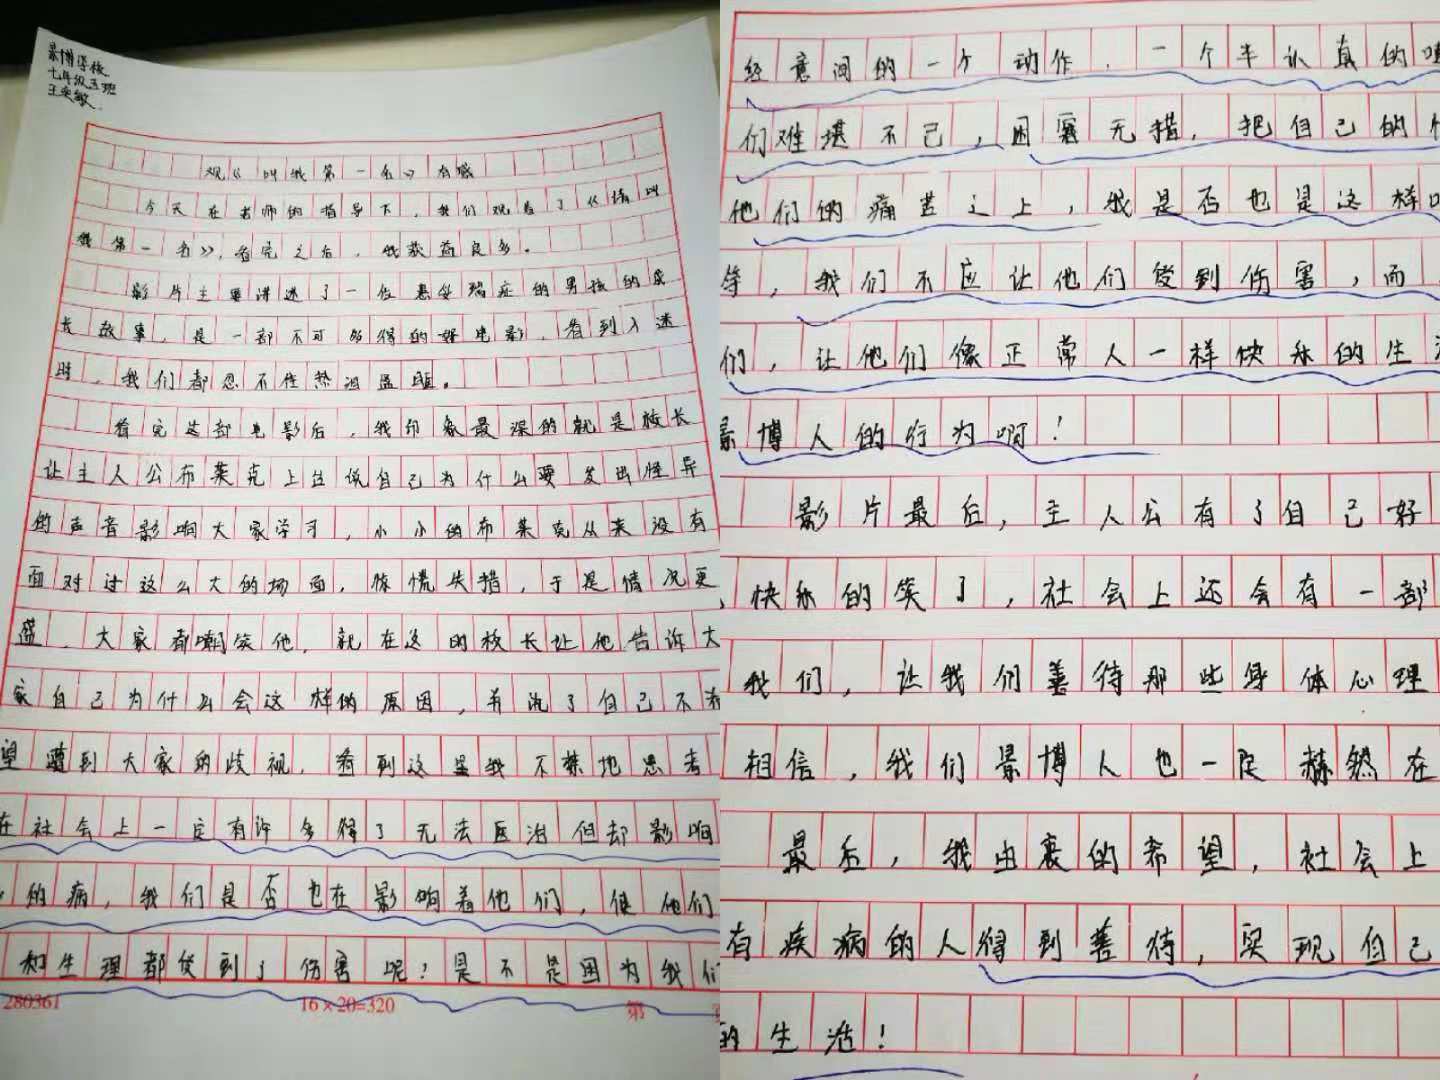 景博学校
七年级五班
王奕敏
观《叫我第一名》有感
今天在老师的指导下，我们观看了《请叫
我第一名》，看完之后，我获益良多。
影片主要讲述了一位患妥瑞症的男孩的成
长故事，是一部不可多得的好电影，看到入迷
时，我们都忍不住热泪盈眶。
看完这部电影后，我印象最深的就是校长
让主人公布莱克上台说自己为什么要发出怪异
的声音影响大家学习，小小的布莱克从来没有
面对过这么大的场面，惊慌失措，于是情况更
盛，大家都嘲笑他，就在这时校长让他告诉大
家自己为什么会这样的原因，并说了自己不希
望遭到大家的歧视，看到这里我不禁地思考
在社会上一定有许多得了无法医治但却影响
的病，我们是否也在影响着他们，使他们
和生理都受到了伤害呢！是不是因为我们
280361
16×20=320
第
经意间的一个动作，一个半认真的
们难堪不已，困窘无措，把自己的
他们的痛苦之上，我是否也是这样
等，我们不应让他们受到伤害，而
们，让他们像正常人一样快乐的生
景博人的行为啊！
影片最后，主人公有了自己好
快乐的笑了，社会上还会有一部
我们，让我们善待那些身体心理
相信，我们景博人也一定赫然在
最后，我由衷的希望，社会上
有疾病的人得到善待，实现自己
的生活！